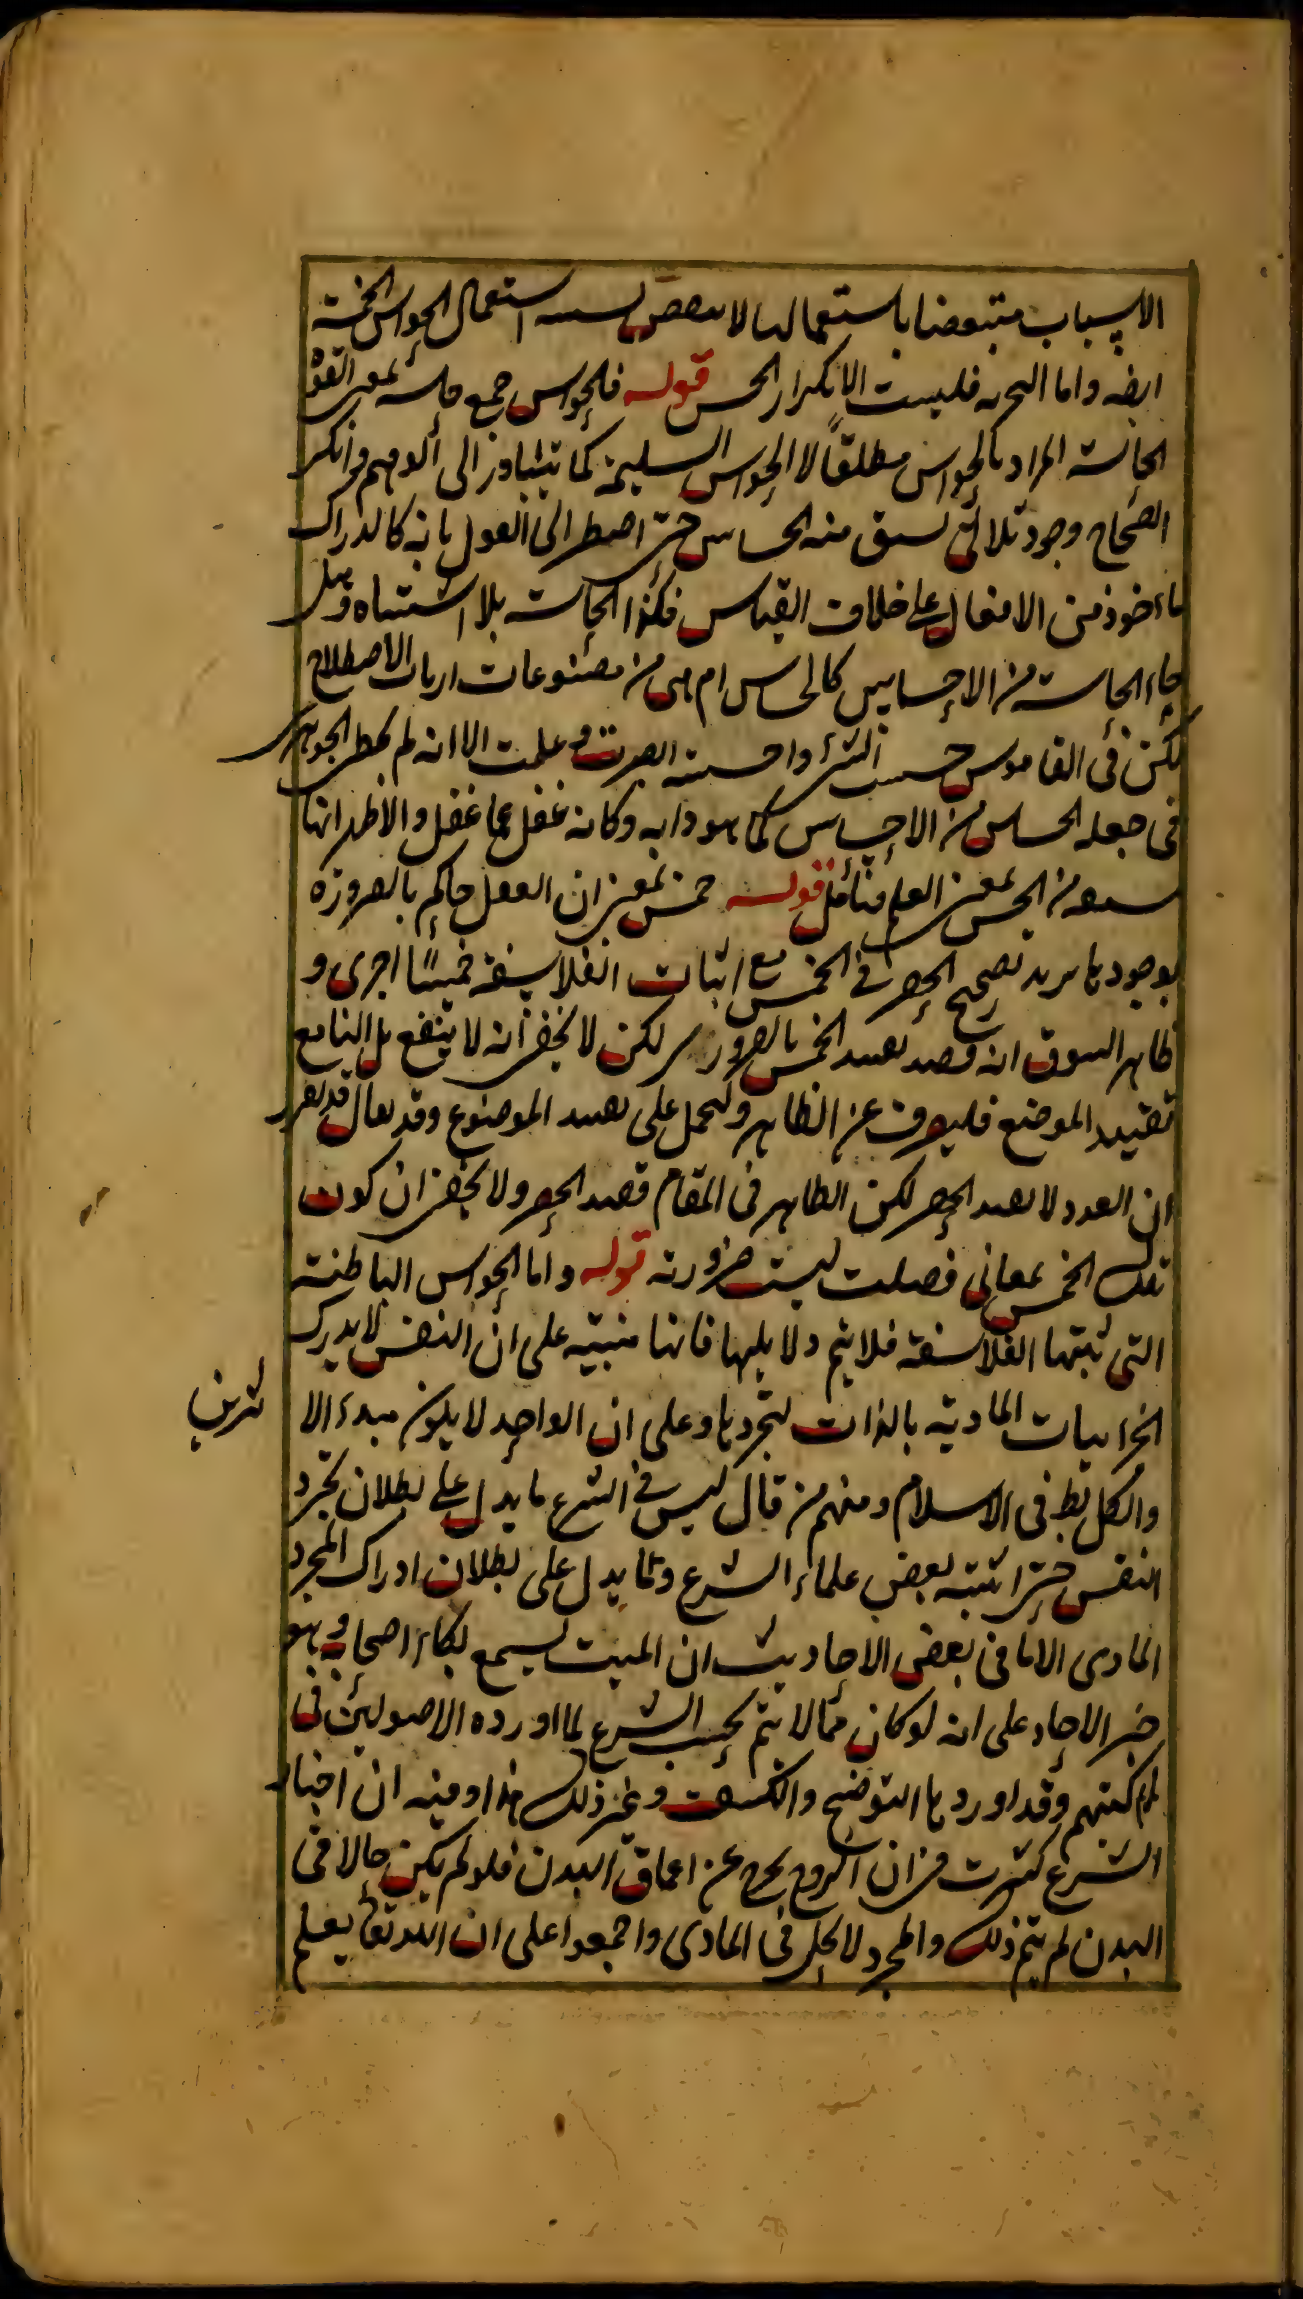 الاسباب متبعضا باستعمالها لا استعمال الحواس الخمسة
ايضه واما التجربه فليست الا تكرار الحس قوله فالحواس جمع حاسة بمعنى القوة
الحاسة المراد بالحواس مطلقاً لا الحواس السليمة كما يتبادر الى الوهم وانكر
الصحاح وجود ثلاثى يسبق منه الحساس حتى اضطر الى القول بانه كالدراك
ماءخوذ من الافعال على خلاف القياس فكذا الحاسة بلا اشتباه وهل
جاء الحاسة من الاحساس كالحساس ام هى من مصنوعات ارباب الاصطلاح
لكن فى القاموس حسست الشئ واحسسته ابصرت وعلمت الا انه لم يخط الجوهرى
فى جعله الحساس من الاحساس كما هو دابه وكانه غفل عما غفل والاظهر انها
من الحس بمعنى العلم فتأمل قوله خمس بمعنى ان العقل حاكم بالضرورة
بوجودها يريد تصحيح الحصر فى الخمس مع اثبات الفلاسفة خمسًا اخرى و
ظاهر السوق انه قصد تقييد الخمس بالضرورى لكن لا يخفى انه لا ينفع بل النافع
تقييد الموضع فليصرف عن الظاهر وليحمل على تقييد الموضوع وقد يقال قد تقرر
ان العدد لا يفيد الحصر لكن الظاهر فى المقام قصد الحصر ولا يخفى ان كون
تلك الخمس بمعانى فصلت ليست ضرورته قوله واما الحواس الباطنة
التى تثبتها الفلاسفة فلا يتم دلايلها فانها مبنية على ان النفس لا يدرك
الجزاييات المادية بالذات لتجردها وعلى ان الواحد لا يكون مبدء الا
لاثرين
والكل بط فى الاسلام ومنهم من قال ليس فى الشرع ما يدل على بطلان تجرد
النفس حتى اثبته بعض علماء الشرع وما يدل على بطلان ادراك المجرد
المادى الا ما فى بعض الاحاديث ان الميت ليسمع بكاء اصحابه وهو
خبر الاحاد على انه لو كان مما لا يتم بحسب الشرع لما اورده الاصوليين فى
كتبهم وقد اوردها التوضيح والكشف وغير ذلك هذا وفيه ان اخبار
الشرع كثرت من ان الروح يخرج عن اعماق البدن فلو لم يكن حالا فى
البدن لم يتم ذلك والمجرد لا يحل فى المادى واجمعوا على ان الله تعا يعلم